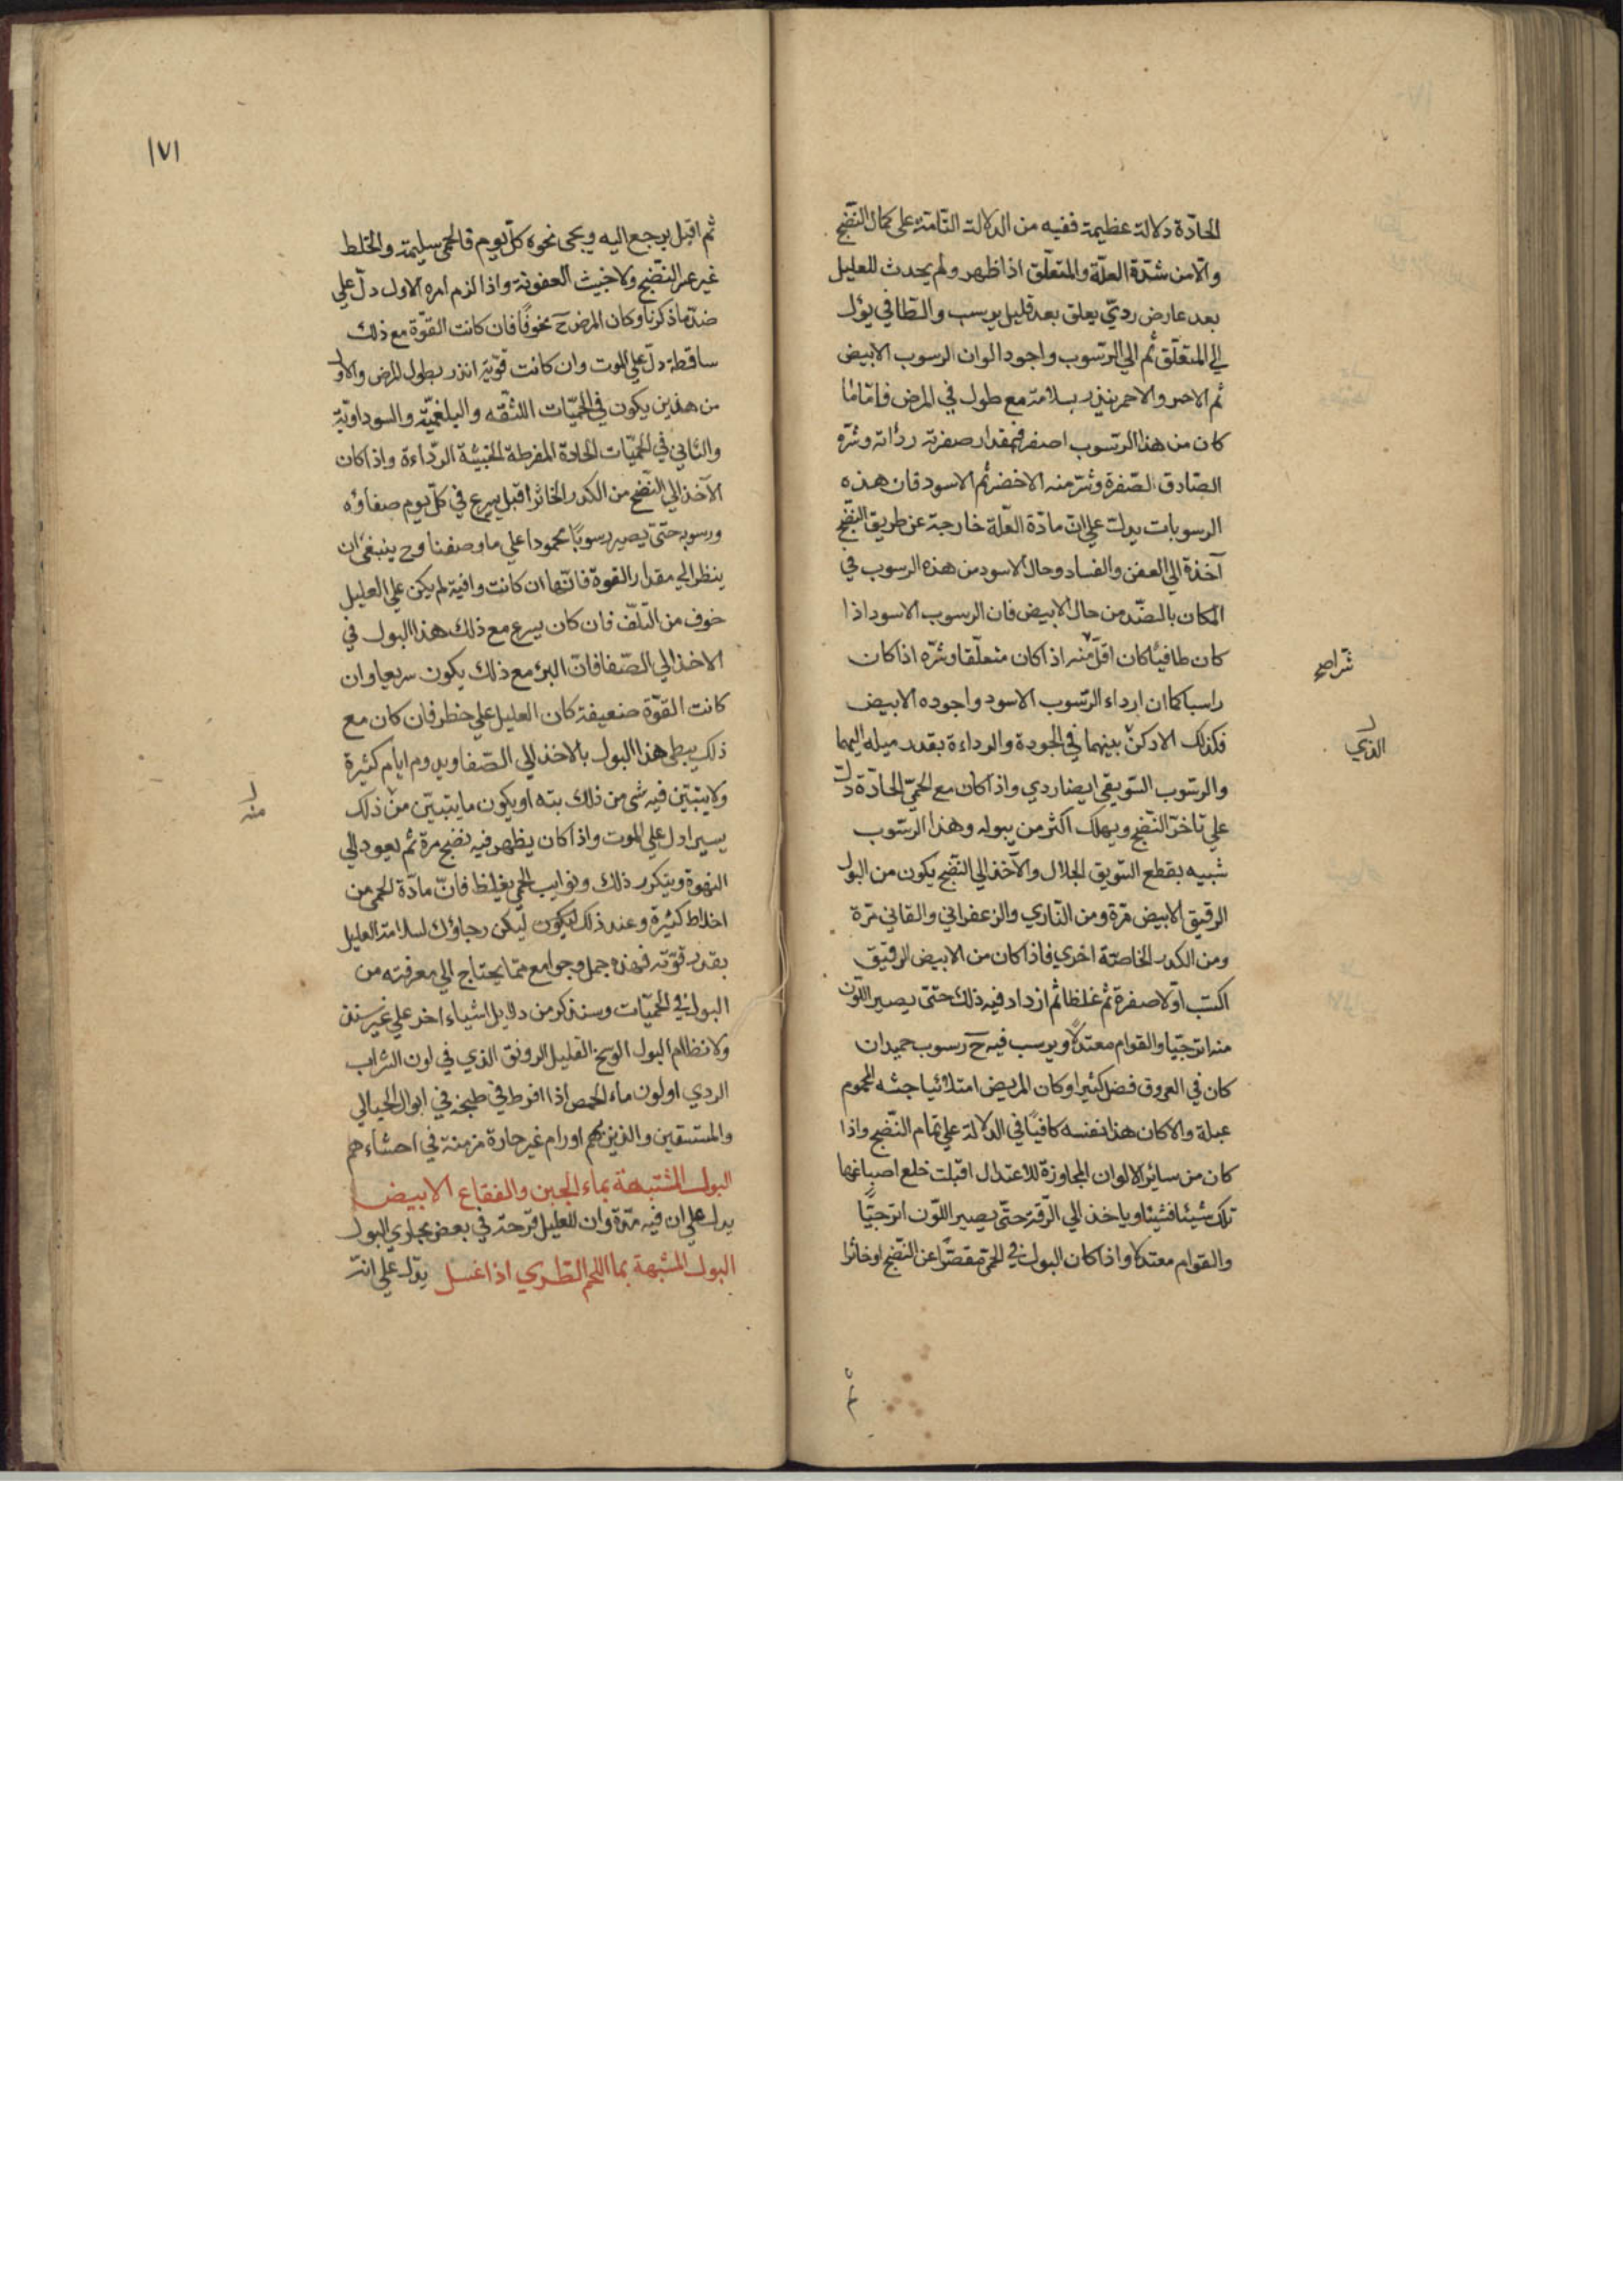 الحادّة دلالة عظيمة ففيه من الدلالة التامّة على كمال النضج
والامن شدّة العلّة والمتعلّق اذا ظهر ولم يحدث للعليل
بعد عارض رديّ يعلق بعد قليل يرسب والطافي يؤل
الي المتعلّق ثم الي الرسوب واجود الوان الرسوب الابيض
ثم الاحمر والاحمر ينذر بسلامة مع طول في المرض فامّا ما
كان من هذا الرسوب اصفر فبمقدار صفرته رداته وشرّه
الصّادق الصّفرة وشرّ منه الاخضر ثم الاسود فان هذه
الرسوبات يدلّ علي انّ مادّة العلّة خارجة عن طريق النضج
آخذة الي العفن والفساد وحال الاسود من هذه الرسوب في
المكان بالضّد من حال الابيض فان الرسوب الاسود اذا
كان طافيًا كان اقلّ منه اذا كان متعلّقا وشرّه اذا كان
شرّا صح
راسبا كما ان ارداء الرّسوب الاسود واجوده الابيض
فكذلك الادكن بينهما في الجودة والرداءة بقدر ميله اليهما
الذي
والرسوب السّويقي ايضا ردي واذا كان مع الحمّي الحادّة دلّ
علي تاخر النّضج ويهلك اكثر من يبوله وهذا الرسّوب
شبيه بقطع السّويق الجلال والآخذ الي النّضج يكون من البول
الرقيق الابيض مرّة ومن النّاري والزعفراني والقاني مرّة
ومن الكدر الخاصّة اخري فاذا كان من الابيض الرقيق
اكتسب اوّلا صفرة ثم غلظا ثم ازداد فيه ذلك حتّى يصير اللون
منه اترجيّا والقوام معتدلاً ويرسب فيه ح رسوب حميد ان
كان في العروق فضل كثير او كان المريض امتلائيا جثه المحموم
عبلة والا كان هذا نفسه كافيًا في الدلالة علي تمام النّضج واذا
كان من سائر الالوان المجاوزة للاعتدال اقبلت خلع اصباغها
تلك شيئا فشيئا وياخذ الي الرّقة حتّى يصير اللّون اترجيّا
والقوام معتدلا واذا كان البول في الحمّي مقصّرا عن النّضج او خاثرا
ثم
١٧١
ثم اقبل يرجع اليه ويجي نحوه كلّ يوم فالحمي سليمة والخلط
غير عسر النّضج ولا خبيث العفونة واذا لزم امره الاول دلّ علي
ضدّ ما ذكرنا وكان المرض ح مخوفًا فان كانت القوّة مع ذلك
ساقطة دلّ علي الموت وان كانت قويّة انذر بطول المرض والاول
من هذين يكون في الحميّات اللثقه والبلغميّة والسوداويّة
والثاني في الحميّات الحادة المفرطة الخبيثة الرّداءة واذا كان
الآخذ الي النّضج من الكدر الخاثر اقبل يسرع في كلّ يوم صفاؤه
ورسوبه حتّى يصير رسوبًا محمودا علي ما وصفنا وح ينبغي ان
ينظر الي مقدار القوة فانّها ان كانت وافية لم يكن علي العليل
خوف من التّلف فان كان يسرع مع ذلك هذا البول في
الاخذ الي الصّفا فانّ البرء مع ذلك يكون سريعا وان
كانت القوّة ضعيفة كان العليل علي خطر فان كان مع
ذلك يبطي هذا البول بالاخذ الي الصّفا ويدوم ايام كثيرة
ولا يتبيّن فيه شي من ذلك بته او يكون ما يتبيّن من ذلك
منه
يسيرا دل علي الموت واذا كان يظهر فيه نضج مرة ثم يعود الي
النهوة ويتكرر ذلك ونوايب الحمي يغلظ فانّ مادّة الحمي من
اخلاط كثيرة وعند ذلك ليكن رجاؤك لسلامة العليل
بقدر قوّته فهذه جمل وجوامع ممّا يحتاج الي معرفته من
البول في الحميّات وسنذكر من دلايل اشياء اخر علي غير سنن
ولا نظام البول الوسخ القليل الرونق الذي في لون الشراب
الردي او لون ماء الحمص اذا افرط في طبخه في ابوال الحبالي
والمستسقين والذين بهم اورام غير حارة مزمنة في احشاءهم
البول المشتبهة بماء الجبن والفقاع الابيض
يدل علي ان فيه مدّة وان للعليل قرحة في بعض مجاري البول
البول المشبهة بما اللحم الطري اذا غسل يدّل علي انّه